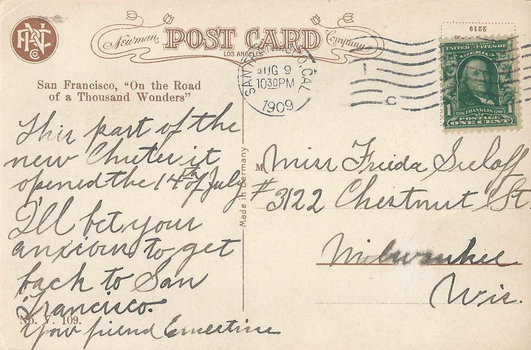 Newman POST CARD Company
LOS ANGELES
San Francisco, "On the Road
of a Thousand Wonders"
SAN FRANCISCO, CAL.
AUG 9
1030PM
1909
3219
UNITED STATES OF
FRANKLIN
POSTAGE
ONE CENT
1
This part of the
new Chutes it
opened the 14th of July
I'll bet your
anxcoin to get
back to San
Francisco.
Your friend Ernestine
No. V. 109.
Made in Germany
Miss Frieda
# 3122 Chestnut St.
Milwaukee
Wis.